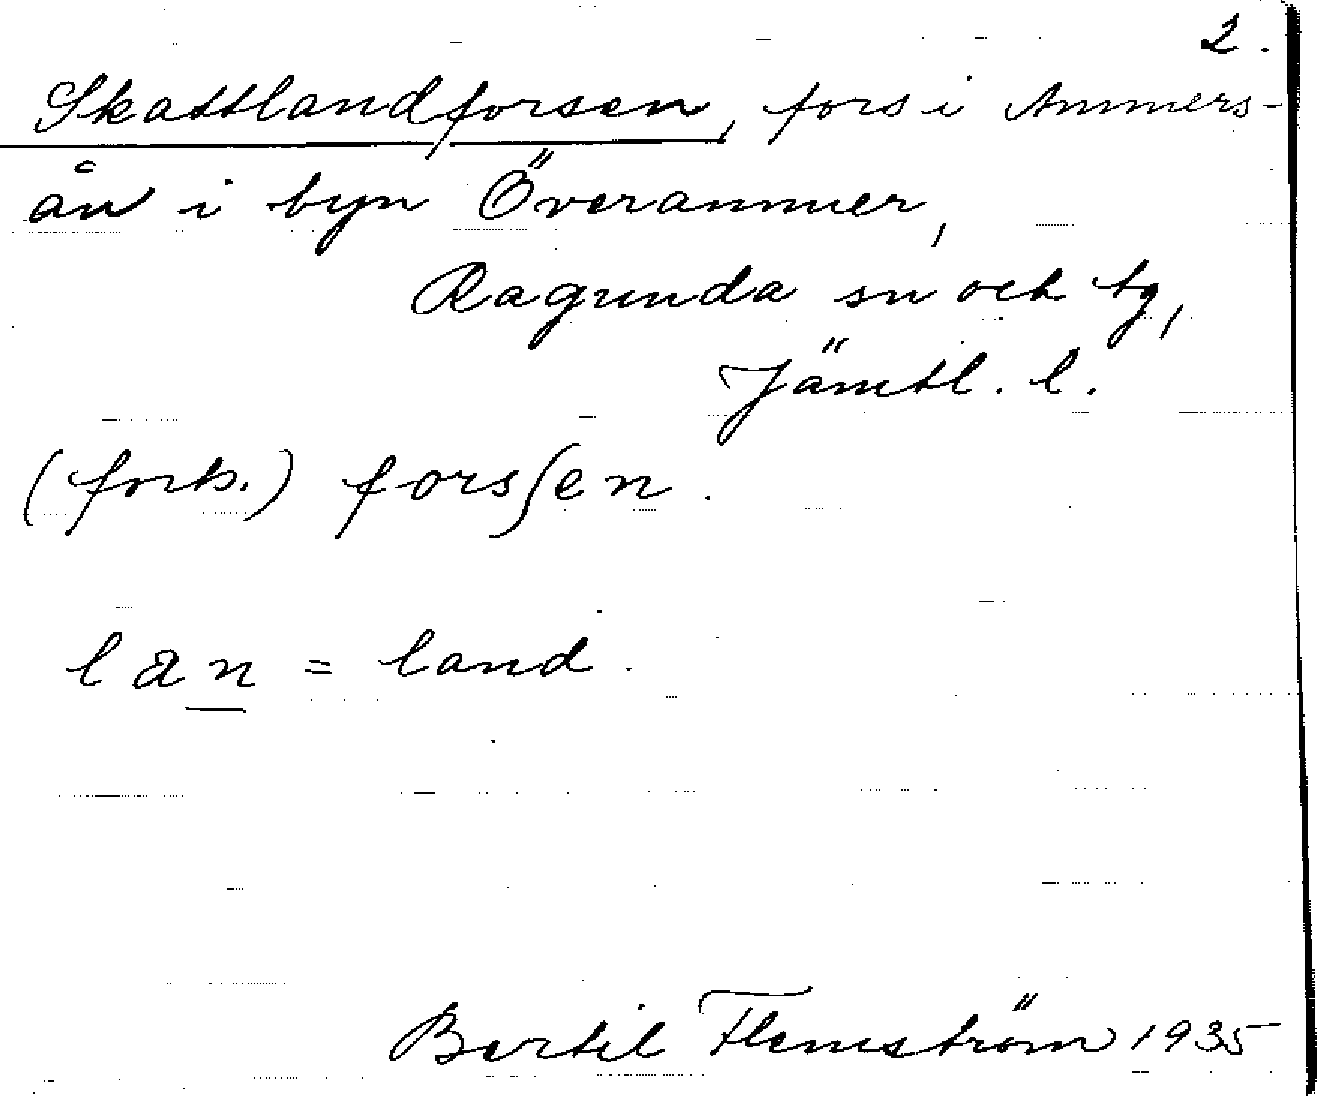 2.
Skattlandforsen, fors i Ammers-
ån i byn Överammer,
Ragunda sn och tg,
Jämtl. l.
(forts.) fors∫en.
lan = land.
Bertil Flemström 1935